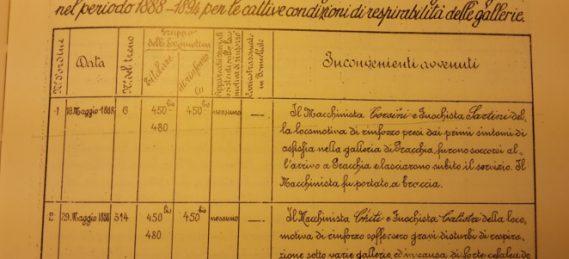 nel periodo 1888-1894 per le cattive condizioni di respirabilità delle gallerie.
N. d'ordine
Data
N. del treno
Gruppo
delle locomotive
titolare
di rinforzo
(1)
Inconvenienti avvenuti
1
18 Maggio 1888
6
450 bis
480
450 bis
nessuno
—
Il Macchinista Corsini e Fuochista Sartini del-
la locomotiva di rinforzo presi dai primi sintomi di
asfissia nella galleria di Pracchia, furono soccorsi al-
l'arrivo a Pracchia e lasciarono subito il servizio. Il
Macchinista fu portato a braccia.
2
29 Maggio 1888
314
450 bis
480
450 bis
nessuno
—
Il Macchinista Chiti e Fuochista Calistri della loco
motiva di rinforzo soffersero gravi disturbi di respira
zione sotto varie gallerie ed in causa di forte cefalea de